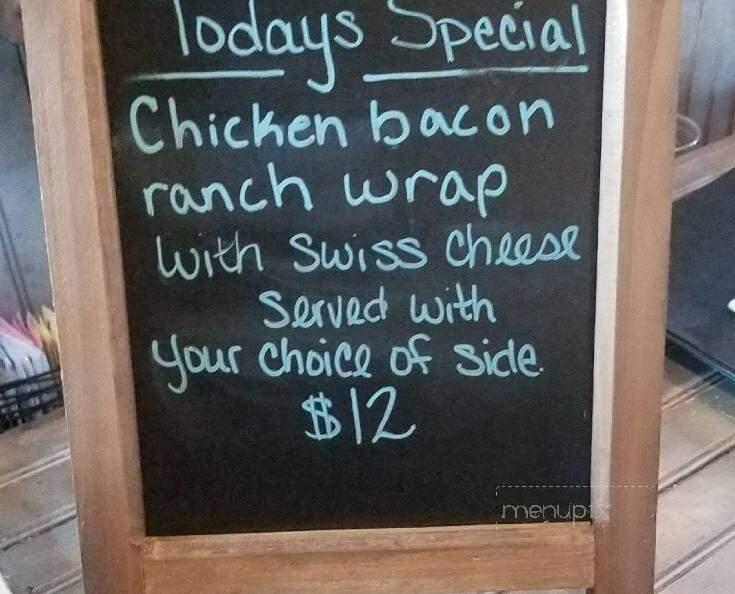 Todays Special
Chicken bacon
ranch wrap
with swiss cheese
served with
your choice of side.
$12
menupix